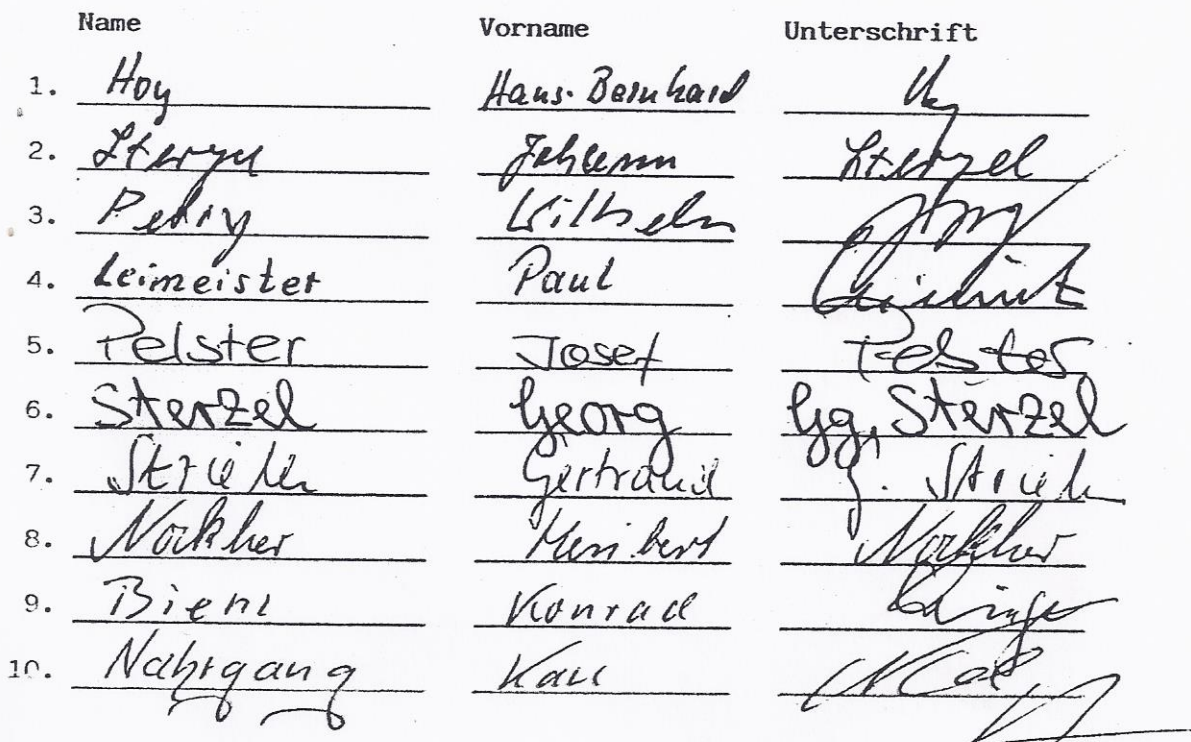 Name Vorname Unterschrift
1. Hoy Hans-Bernhard Hoy
2. Sterzel Johann Sterzel
3. Perry Wilhelm
4. Leimeister Paul
5. Pelster Josef Pelster
6. Sterzel Georg Gg. Sterzel
7. Gertraud G.
8. Nockher Heribert Nockher
9. Konrad
10. Nahrgang Karl